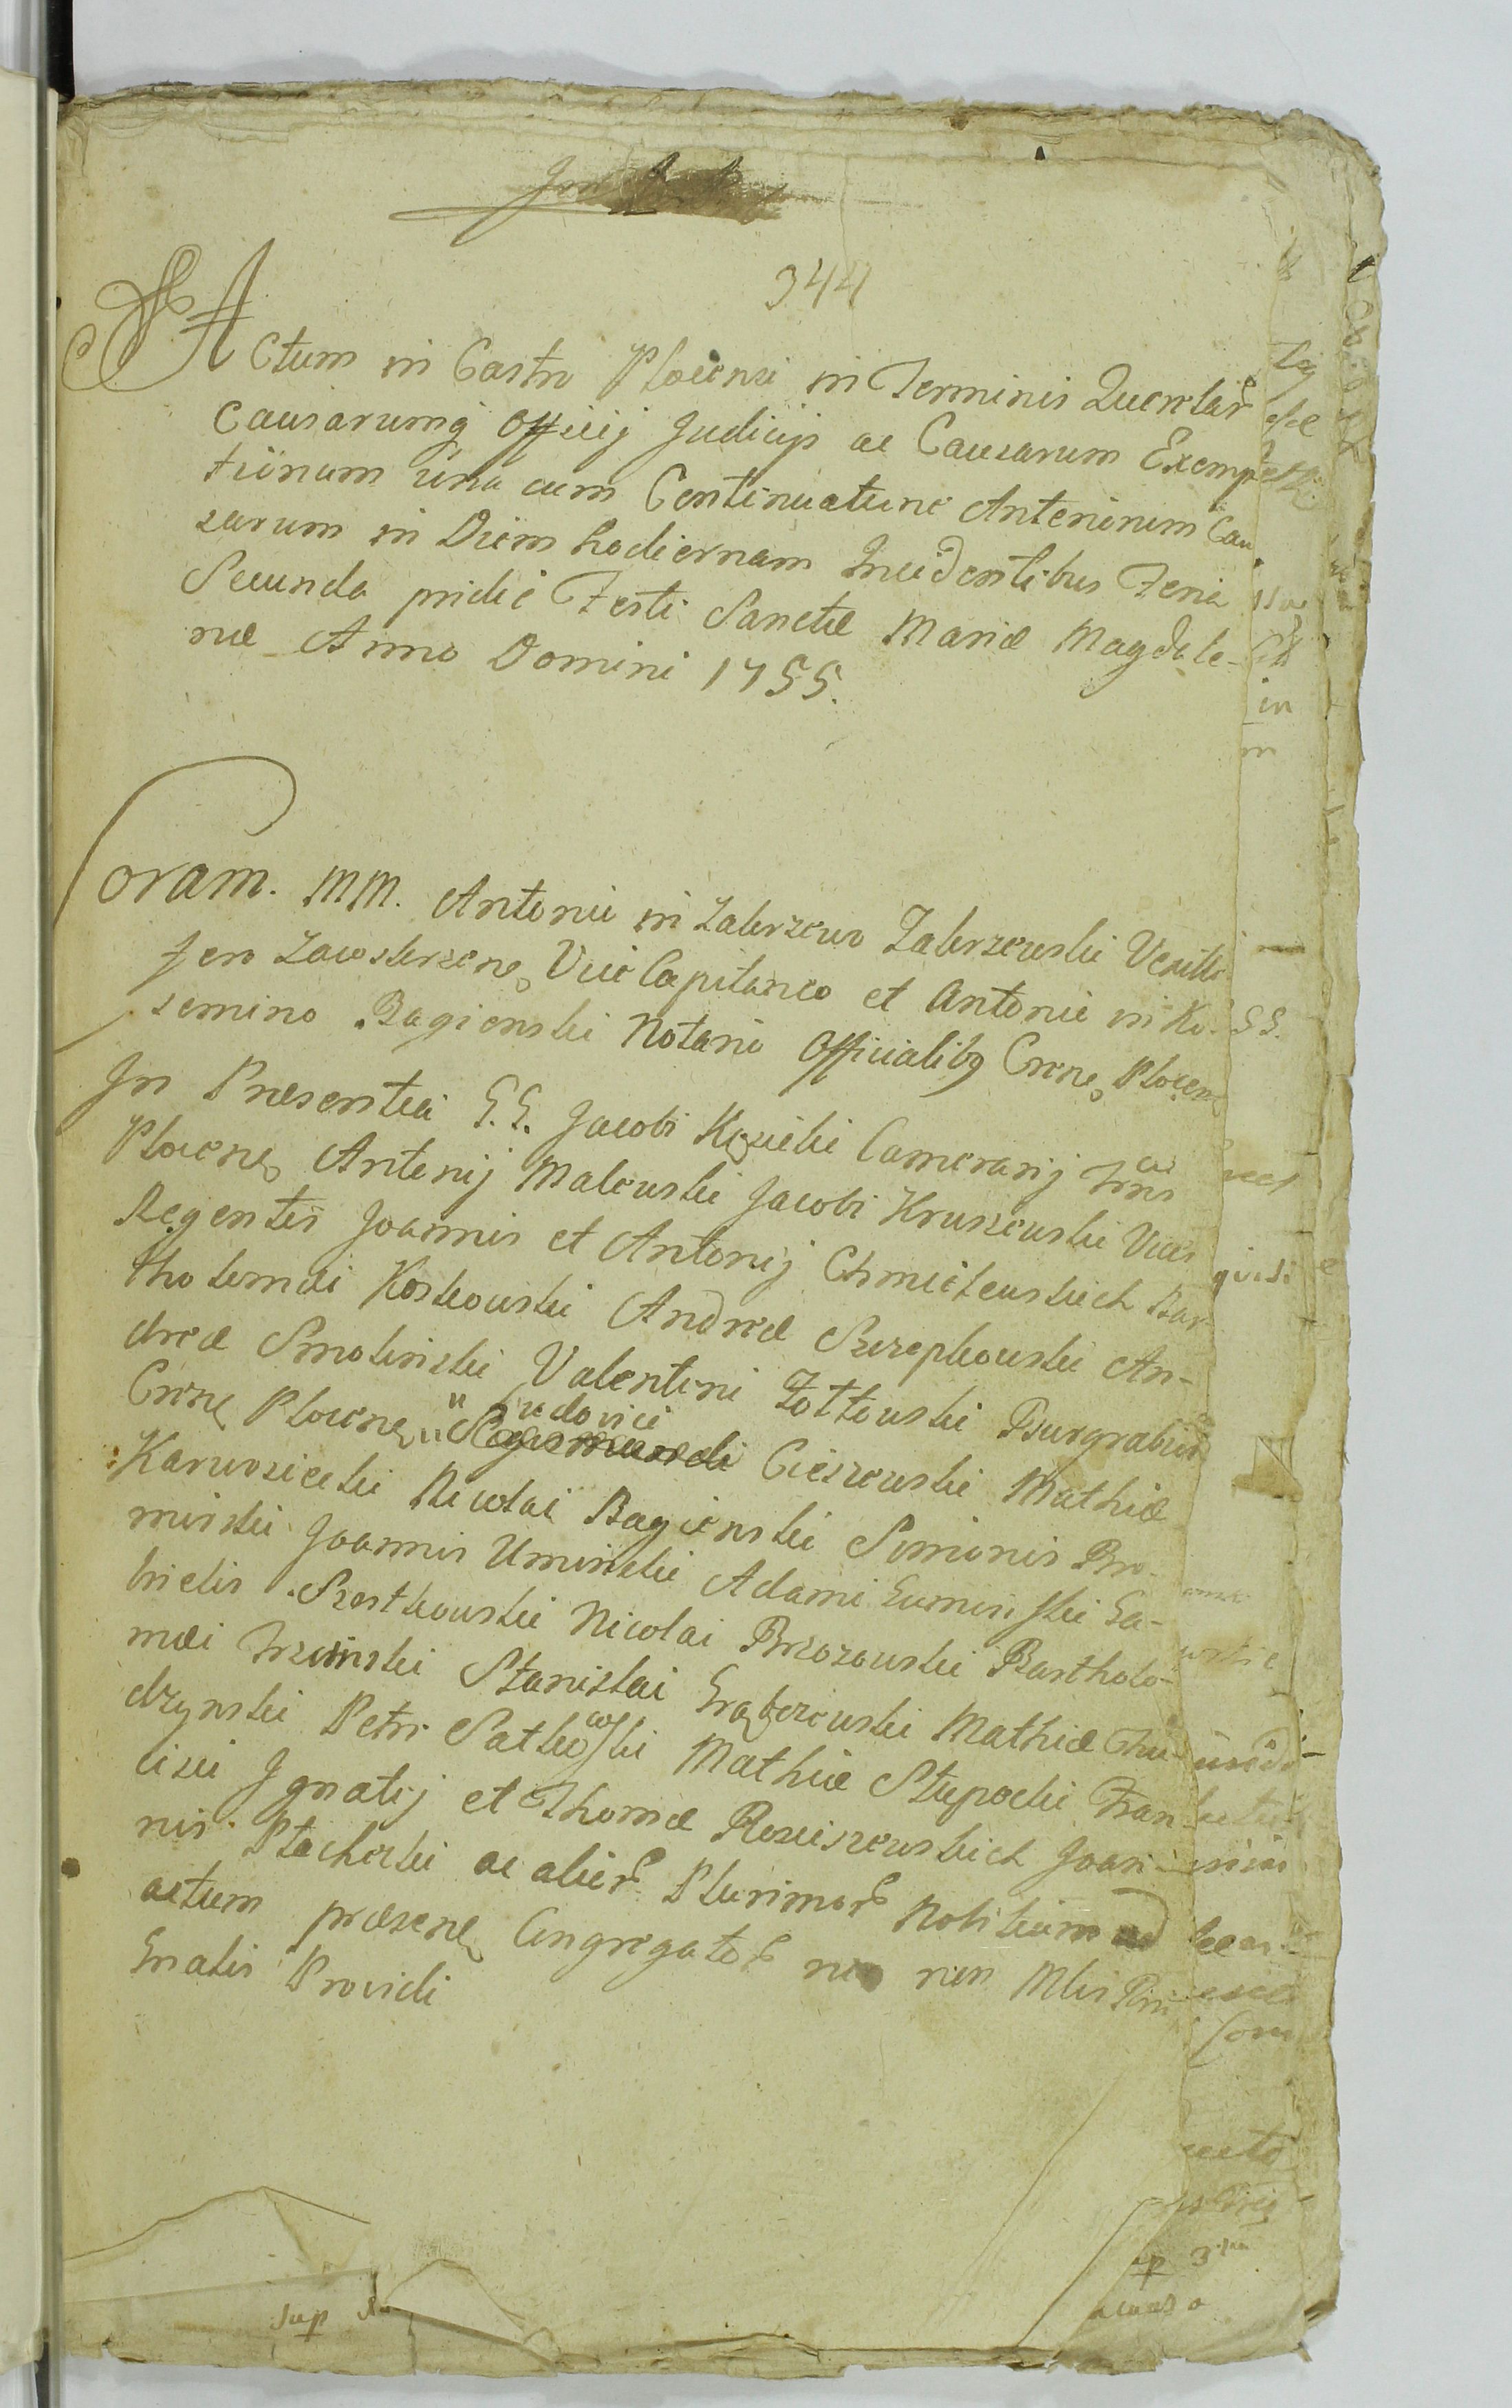 344
Actum in Castro Plocensi in Terminis Querelar
Causarumq Officij Judicijs ac Causarum Exemp
tionum una cum Continuatione Anteriorum Cau
sarum in Diem hodiernam Incidentibus Feria
Secunda pridie Festi Sanctæ Mariæ Magdale-
næ Anno Domini 1755.
Coram. MM. Antonio in Zakrzewo Zakrzewski Vexilli
fero Zawskrzene, Vice Capitaneo et Antonio in Ko-
semino Bagienski Notario Officialibq Crene, Plocen
In Præsentia G.G. Jacobi Kęsicki Camerarij Trris
Plocene, Antonij Malewski Jacobi Kruszewski Vices
Regentis Joannis et Antonij Chmielewskich Bar
tholomæi Koskowski Andreæ Szczepkowski An-
dreæ Smolinski Valentini Żółtowski Burgrabior
Crene Plocene, Ludovici Cieszewski Mathiæ
Karwosiecki Nicolai Bagienski Simonis Bro-
miński Joannis Uminski Adami Gumiński Ga-
brielis Szostkowski Nicolai Brzozowski Bartholo-
mæi Trzcinski Stanislai Grąbczewski Mathiæ
dzynski Petri Satkowski Mathiæ Stępocki Fran
cisci Ignatij et Thomæ Rosciszewskich Joan
nis Płachecki ac alior Plurimor Nobilium ad
actum præsene, Congregator nec non Mlis
Gnalis Providi
Sup